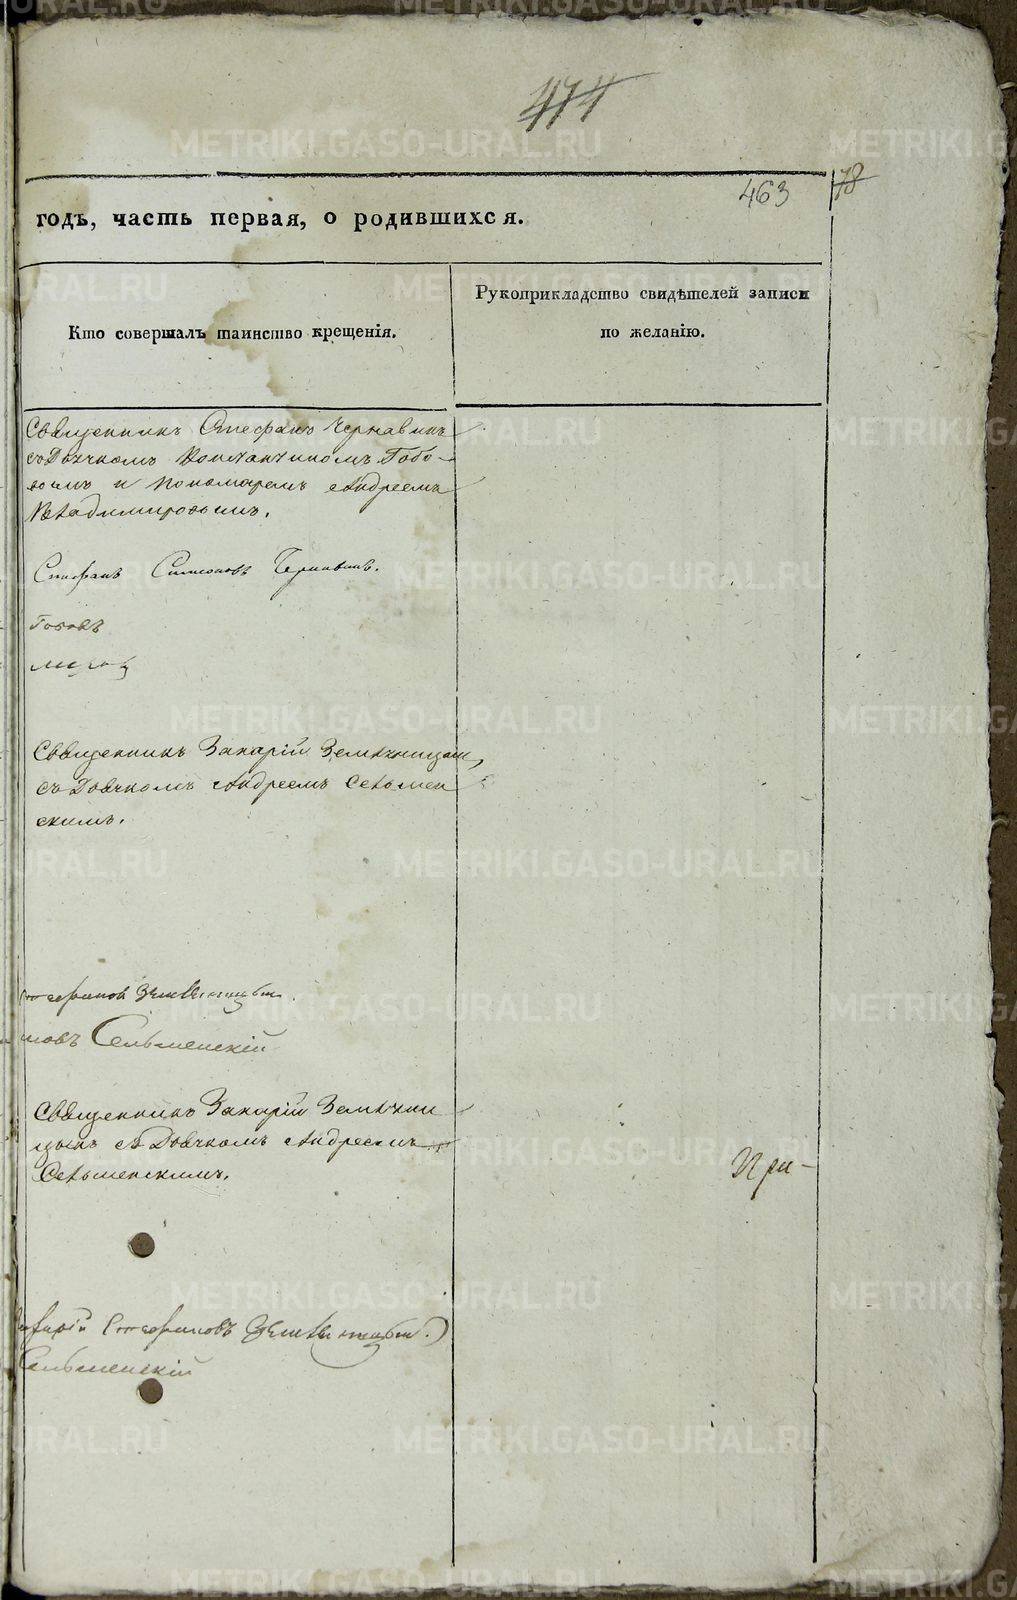 474
463
78
годъ, часть первая, о родившихся.
Кто совершалъ таинство крещенія.
Рукоприкладство свидѣтелей записи
по желанію.
Священникъ Стефанъ Чернавинъ
съ Дьячкомъ Константиномъ Гобо-
вымъ и пономаремъ Андреемъ
Владимировымъ.
Стефанъ Симеоновъ Чернавинъ.
Священникъ Захарій Земляницын
съ Дьячкомъ Андреемъ Сельмен
скимъ.
Стефановъ Земляницын.
новъ Сельменскій
Священникъ ЗахарійЗемляни
цынъ съ Дьячкомъ Андреемъ
Сельменскимъ.
При-
Захарій Стефановъ Земляницын.
Сельменскій
METRIKI.GASO-URAL.RU